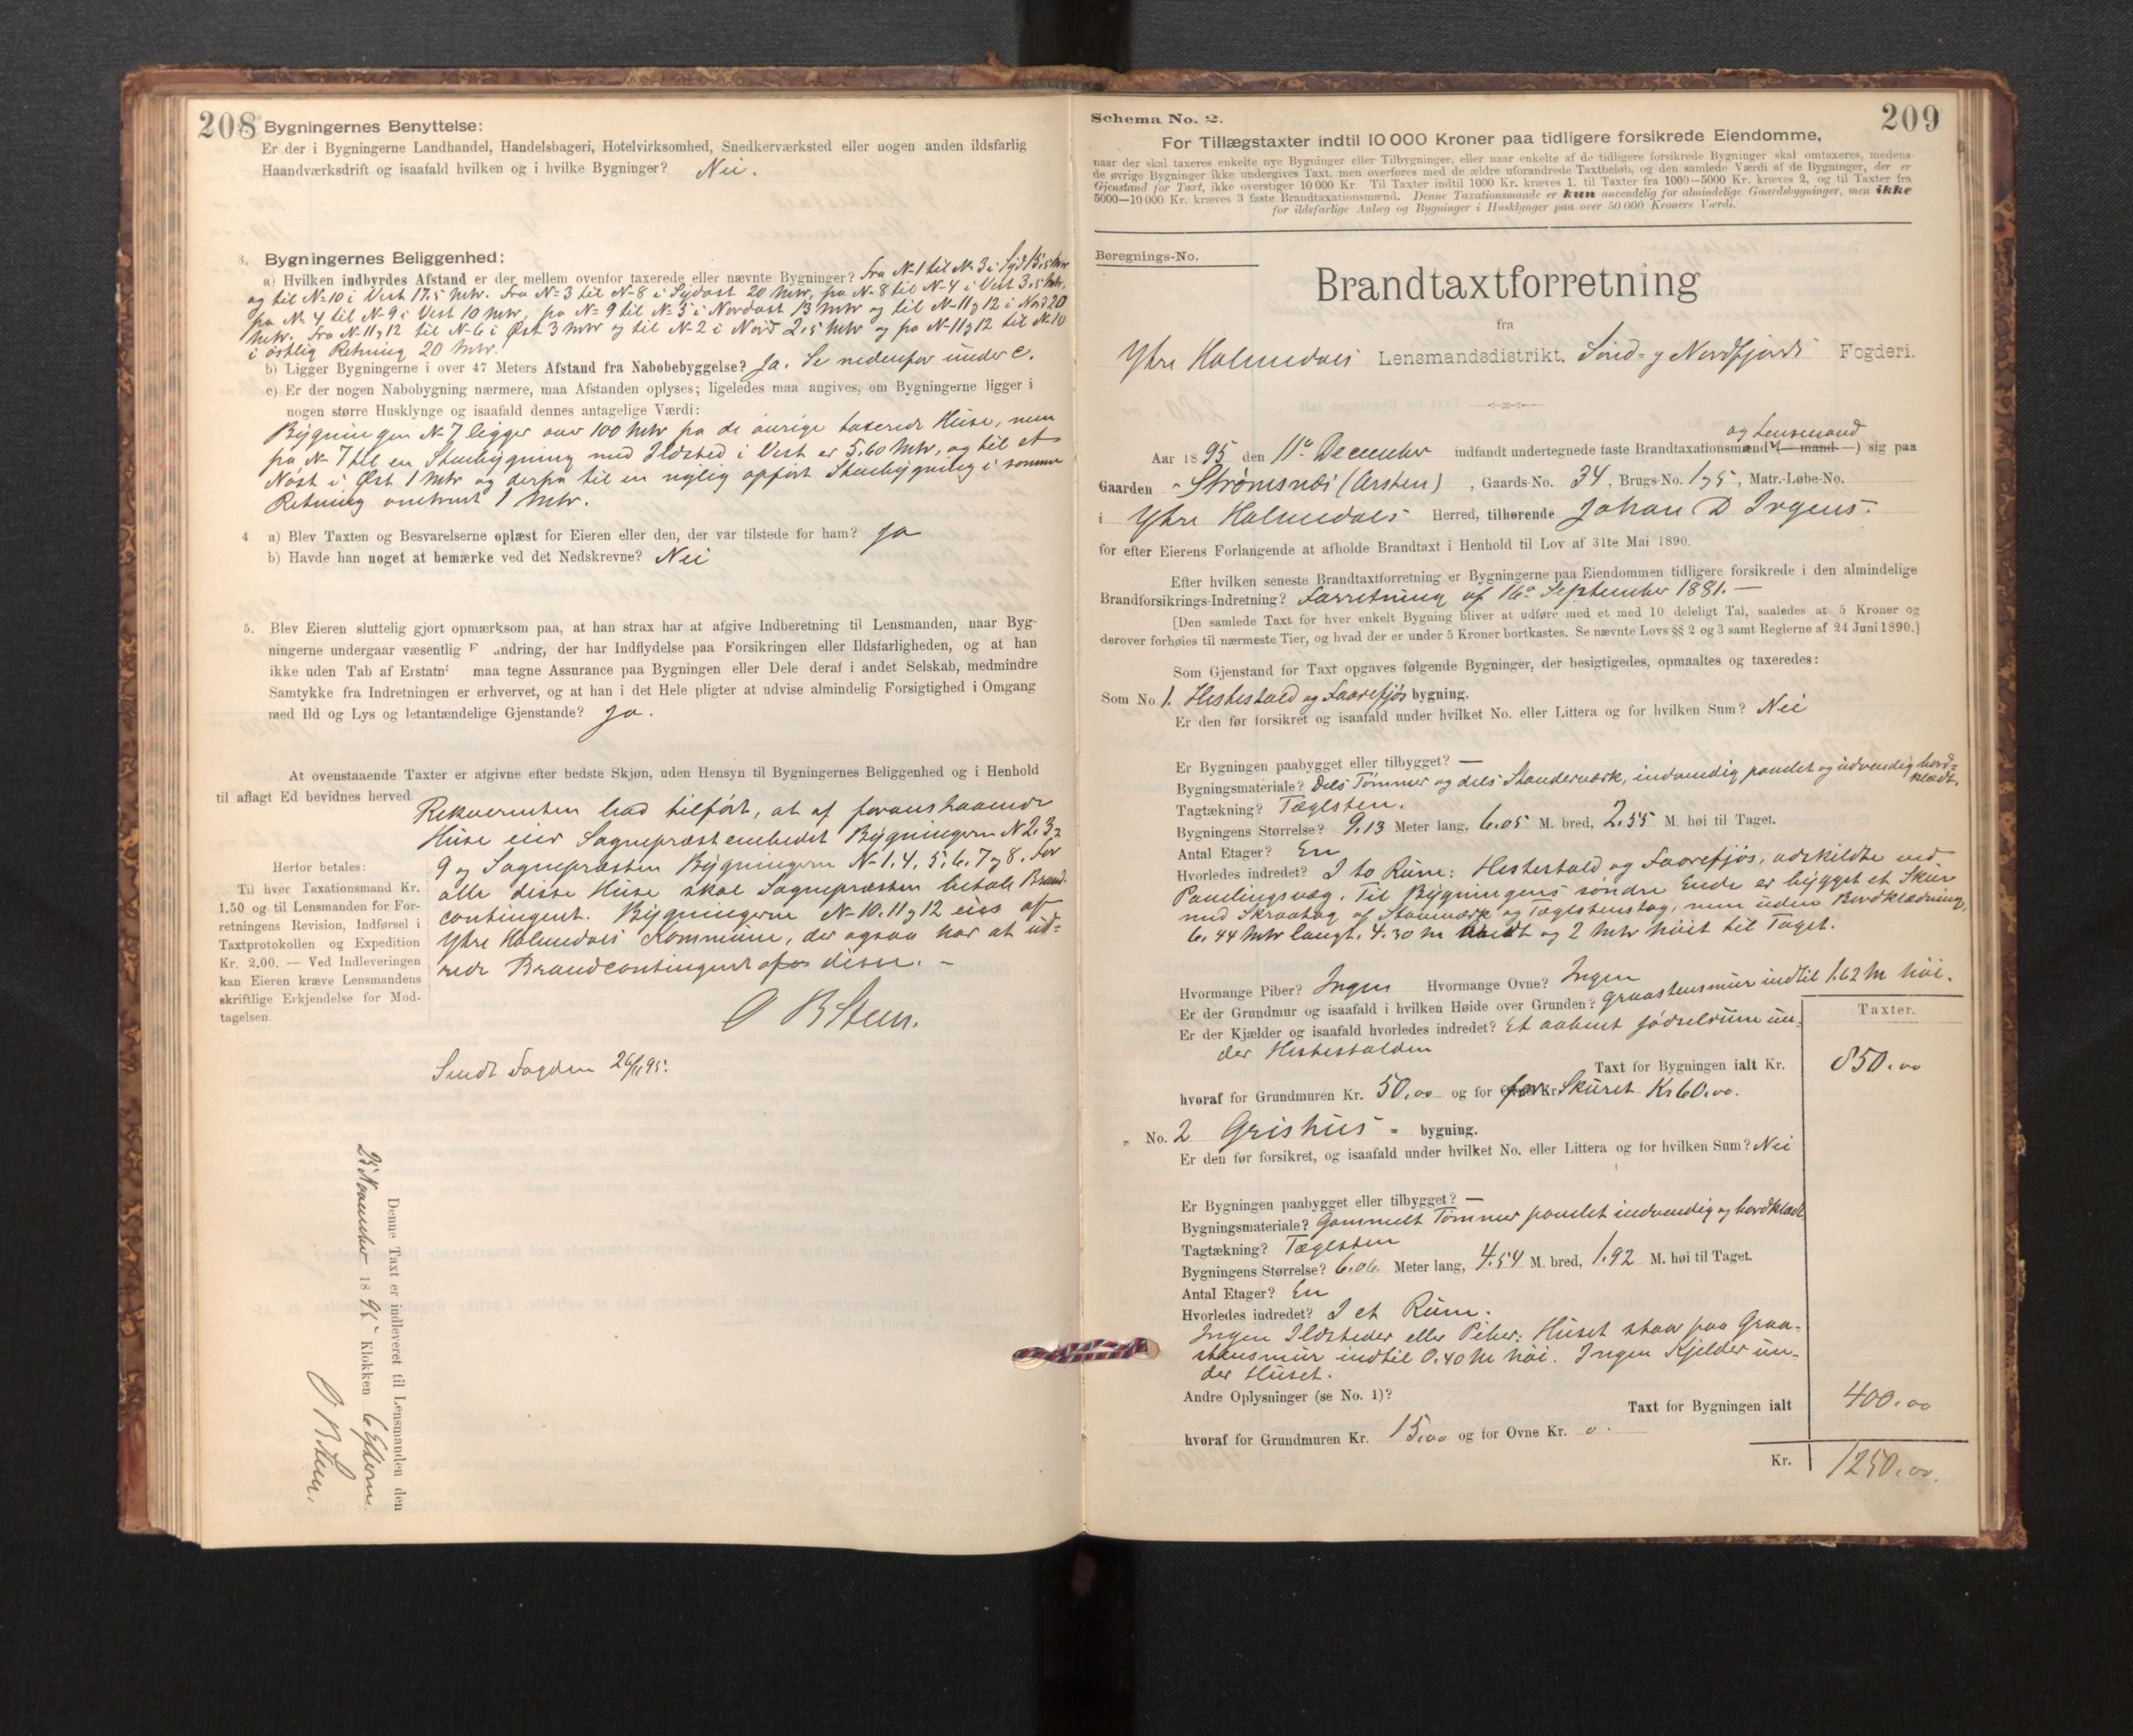 208
Bygningernes Benyttelse:
Er der i Bygningerne Landhandel, Handelsbageri, Hotelvirksomhed, Snedkerværksted eller nogen anden ildsfarlig
Haandværksdrift og isaafald hvilken og i hvilke Bygninger? Nei.
3. Bygningernes Beliggenhed:
a) Hvilken indbyrdes Afstand er der mellem ovenfor taxerede eller nævnte Bygninger? Fra No 1 til No 3 i Syd 15,5 Mtr
og til No 10 i Vest 17,5 Mtr. Fra No 3 til No 8 i Sydost 20 Mtr, fra No 8 til No 4 i Vest 3,5 Mtr,
fra No 4 til No 9 i Vest 10 Mtr, fra No 9 til No 5 i Nordost 13 Mtr og til No 11 & 12 i Nord 20
Mtr. Fra No 11 & 12 til No 6 i Øst 3 Mtr og til No 2 i Nord 2,5 Mtr og fra No 11 & 12 til No 10
i østlig Retning 20 Mtr.
b) Ligger Bygningerne i over 47 Meters Afstand fra Nabobebyggelse? Ja. Se nedenfor under c.
c) Er der nogen Nabobygning nærmere, maa Afstanden oplyses; ligeledes maa angives, om Bygningerne ligger i
nogen større Husklynge og isaafald dennes antagelige Værdi:
Bygningen No 7 ligger over 100 Mtr fra de øvrige taxerede Huse, men
fra No 7 til en Stuebygning med Ildsted i Vest er 5,60 Mtr, og til et
Nøst i Øst 1 Mtr og derfra til en nylig opført Stuebygning i samme
Retning omtrent 1 Mtr.
4. a) Blev Taxten og Besvarelserne oplæst for Eieren eller den, der var tilstede for ham? Ja
b) Havde han noget at bemærke ved det Nedskrevne? Nei
5. Blev Eieren sluttelig gjort opmærksom paa, at han strax har at afgive Indberetning til Lensmanden, naar Byg-
ningerne undergaar væsentlig F andring, der har Indflydelse paa Forsikringen eller Ildsfarligheden, og at han
ikke uden Tab af Erstatni maa tegne Assurance paa Bygningen eller Dele deraf i andet Selskab, medmindre
Samtykke fra Indretningen er erhvervet, og at han i det Hele pligter at udvise almindelig Forsigtighed i Omgang
med Ild og Lys og letantændelige Gjenstande? Ja.
At ovenstaaende Taxter er afgivne efter bedste Skjøn, uden Hensyn til Bygningernes Beliggenhed og i Henhold
til aflagt Ed bevidnes herved.
Rekvirenten lod tilført, at af foranstaaende
Huse eier Sognepræstembedet Bygningerne No 2. 3 &
9 og Sognepræsten Bygningerne No 1. 4. 5. 6. 7 & 8. For
alle disse Huse skal Sognepræsten betale Brand-
contingent. Bygningerne No 10. 11 & 12 eies af
Ytre Holmedals Kommune, der ogsaa har at ud-
rede Brandcontingent af disse. –
O B Steen.
Sendt Fogden 26/11 95.
Herfor betales:
Til hver Taxationsmand Kr.
1.50 og til Lensmanden for For-
retningens Revision, Indførsel i
Taxtprotokollen og Expedition
Kr. 2.00. — Ved Indleveringen
kan Eieren kræve Lensmandens
skriftlige Erkjendelse for Mod-
tagelsen.
Denne Taxt er indleveret til Lensmanden den
25 November 1895 Klokken 6 Efterm.
O B Steen.
209
Schema No. 2.
For Tillægstaxter indtil 10 000 Kroner paa tidligere forsikrede Eiendomme,
naar der skal taxeres enkelte nye Bygninger eller Tilbygninger, eller naar enkelte af de tidligere forsikrede Bygninger skal omtaxeres, medens
de øvrige Bygninger ikke undergives Taxt, men overføres med de ældre uforandrede Taxtbeløb, og den samlede Værdi af de Bygninger, der er
Gjenstand for Taxt, ikke overstiger 10 000 Kr. Til Taxter indtil 1000 Kr. kræves 1, til Taxter fra 1000—5000 Kr. kræves 2, og til Taxter fra
5000—10 000 Kr. kræves 3 faste Brandtaxationsmænd. Denne Taxationsmaade er kun anvendelig for almindelige Gaardsbygninger, men ikke
for ildsfarlige Anlæg og Bygninger i Husklynger paa over 50 000 Kroners Værdi.
Beregnings-No.
Brandtaxtforretning
fra
Ytre Holmedals Lensmandsdistrikt, Sønd- & Nordfjords Fogderi.
og Lensmand
Aar 1895 den 11te December indfandt undertegnede faste Brandtaxationsmænd (—mand—) sig paa
Gaarden Strømsnæs (Arsten), Gaards-No. 34, Brugs-No. 1 & 5, Matr.-Løbe-No.
i Ytre Holmedals Herred, tilhørende Johan D Irgens.
for efter Eierens Forlangende at afholde Brandtaxt i Henhold til Lov af 31te Mai 1890.
Efter hvilken seneste Brandtaxtforretning er Bygningerne paa Eiendommen tidligere forsikrede i den almindelige
Brandforsikrings-Indretning? Forretning af 16de September 1881. —
[Den samlede Taxt for hver enkelt Bygning bliver at udføre med et med 10 deleligt Tal, saaledes at 5 Kroner og
derover forhøies til nærmeste Tier, og hvad der er under 5 Kroner bortkastes. Se nævnte Lovs §§ 2 og 3 samt Reglerne af 24 Juni 1890.]
Som Gjenstand for Taxt opgaves følgende Bygninger, der besigtigedes, opmaaltes og taxeredes:
Som No 1. Hestestald og Faarefjøs bygning.
Er den før forsikret og isaafald under hvilket No. eller Littera og for hvilken Sum? Nei
Er Bygningen paabygget eller tilbygget? —
Bygningsmateriale? Dels Tømmer og dels Standerværk, indvendig panelet og udvendig bord-
klædt.
Tagtækning? Tæglsten.
Bygningens Størrelse? 9,13 Meter lang, 6,05 M. bred, 2,55 M. høi til Taget.
Antal Etager? En
Hvorledes indredet? I to Rum: Hestestald og Faarefjøs, adskildte ved
Panelingsvæg. Til Bygningens søndre Ende er bygget et Skur
med Skraatag af Stavværk og Tæglstenstag, men uden Bordklædning,
6,44 Mtr langt, 4.30 m bredt og 2 Mtr høit til Taget.
Hvormange Piber? Ingen Hvormange Ovne? Ingen
Er der Grundmur og isaafald i hvilken Høide over Grunden? Graastensmur indtil 1.62 m høi.
Er der Kjælder og isaafald hvorledes indredet? Et aabent Gjødselrum un-
der Hestestalden
Taxter.
Taxt for Bygningen ialt Kr. 850.00
hvoraf for Grundmuren Kr. 50,00 og for Skuret Kr 60,00.
„ No. 2 Grishus - bygning.
Er den før forsikret, og isaafald under hvilket No. eller Littera og for hvilken Sum? Nei
Er Bygningen paabygget eller tilbygget? —
Bygningsmateriale? Gammelt Tømmer panelet indvendig og bordklædt
Tagtækning? Tæglsten
Bygningens Størrelse? 6,06. Meter lang, 4,54 M. bred, 1,92 M. høi til Taget.
Antal Etager? En
Hvorledes indredet? I et Rum.
Ingen Ildsteder eller Piber. Huset staar paa Graa-
stensmur indtil 0.40 m høi. Ingen Kjelder un-
der Huset.
Andre Oplysninger (se No. 1)?
Taxt for Bygningen ialt 400.00
hvoraf for Grundmuren Kr. 15,00 og for Ovne Kr. 0.
Kr. 1250,00.